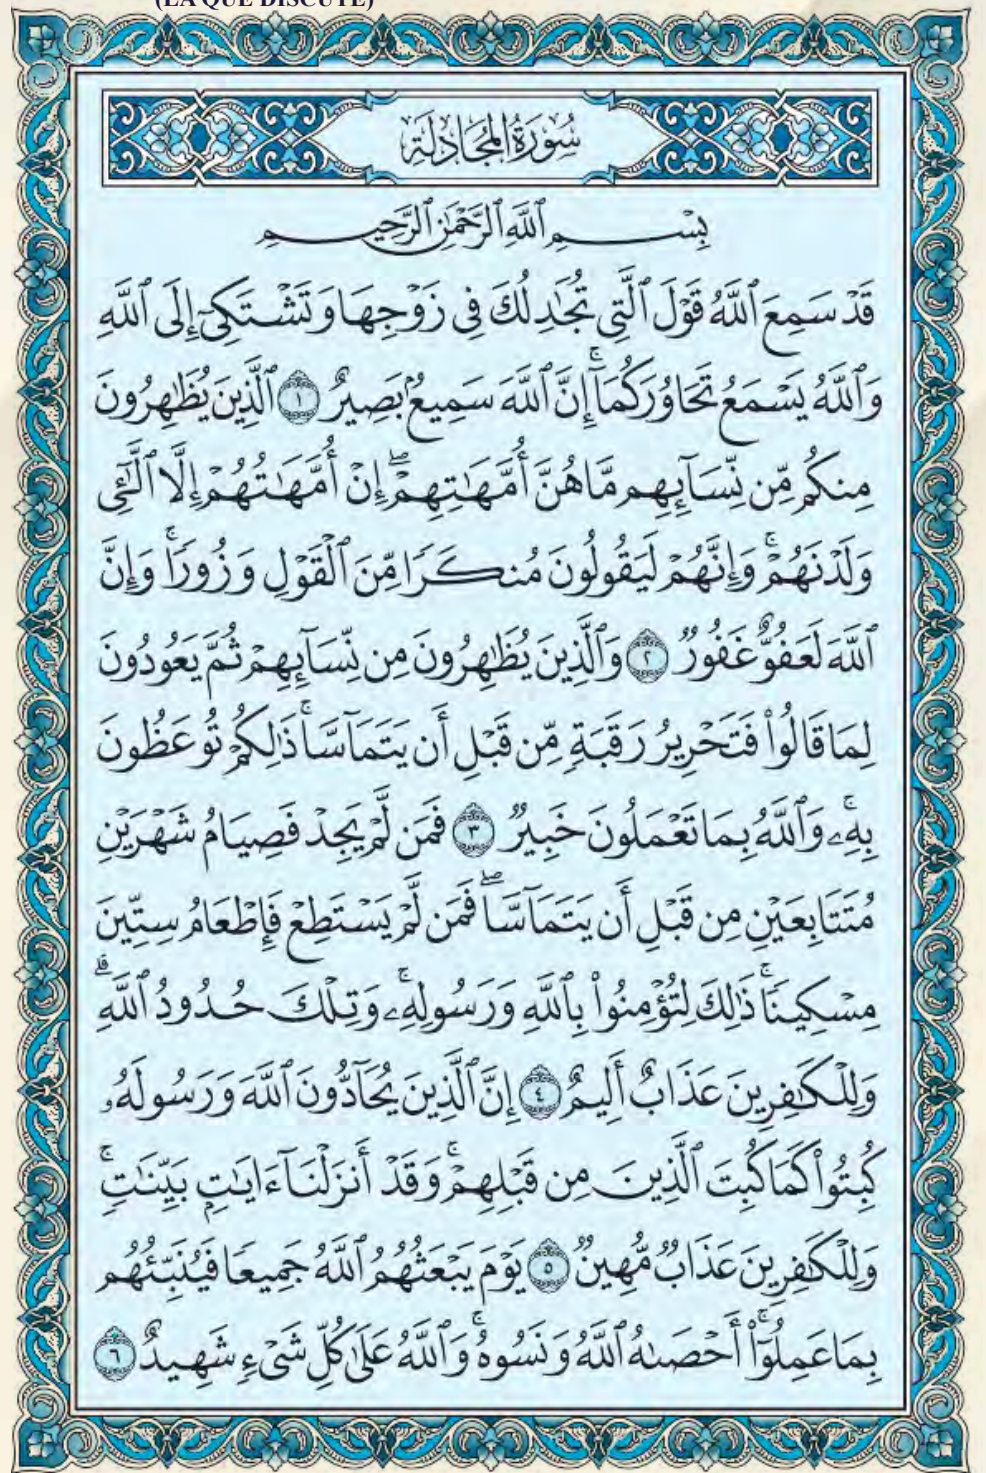 (LA QUE DISCUTE)
سُورَةُ المُجَادلَةِ
بِسْمِ ٱللَّهِ ٱلرَّحْمَٰنِ ٱلرَّحِيمِ
قَدْ سَمِعَ ٱللَّهُ قَوْلَ ٱلَّتِى تُجَٰدِلُكَ فِى زَوْجِهَا وَتَشْتَكِىٓ إِلَى ٱللَّهِ
وَٱللَّهُ يَسْمَعُ تَحَاوُرَكُمَآ ۚ إِنَّ ٱللَّهَ سَمِيعٌۢ بَصِيرٌ ١ ٱلَّذِينَ يُظَٰهِرُونَ
مِنكُم مِّن نِّسَآئِهِم مَّا هُنَّ أُمَّهَٰتِهِمْ ۖ إِنْ أُمَّهَٰتُهُمْ إِلَّا ٱلَّٰٓـِٔى
وَلَدْنَهُمْ ۚ وَإِنَّهُمْ لَيَقُولُونَ مُنكَرًا مِّنَ ٱلْقَوْلِ وَزُورًا ۚ وَإِنَّ
ٱللَّهَ لَعَفُوٌّ غَفُورٌ ٢ وَٱلَّذِينَ يُظَٰهِرُونَ مِن نِّسَآئِهِمْ ثُمَّ يَعُودُونَ
لِمَا قَالُوا۟ فَتَحْرِيرُ رَقَبَةٍ مِّن قَبْلِ أَن يَتَمَآسَّا ۚ ذَٰلِكُمْ تُوعَظُونَ
بِهِۦ ۚ وَٱللَّهُ بِمَا تَعْمَلُونَ خَبِيرٌ ٣ فَمَن لَّمْ يَجِدْ فَصِيَامُ شَهْرَيْنِ
مُتَتَابِعَيْنِ مِن قَبْلِ أَن يَتَمَآسَّا ۖ فَمَن لَّمْ يَسْتَطِعْ فَإِطْعَامُ سِتِّينَ
مِسْكِينًا ۚ ذَٰلِكَ لِتُؤْمِنُوا۟ بِٱللَّهِ وَرَسُولِهِۦ ۚ وَتِلْكَ حُدُودُ ٱللَّهِ ۗ
وَلِلْكَٰفِرِينَ عَذَابٌ أَلِيمٌ ٤ إِنَّ ٱلَّذِينَ يُحَآدُّونَ ٱللَّهَ وَرَسُولَهُۥ
كُبِتُوا۟ كَمَا كُبِتَ ٱلَّذِينَ مِن قَبْلِهِمْ ۚ وَقَدْ أَنزَلْنَآ ءَايَٰتٍۭ بَيِّنَٰتٍ ۚ
وَلِلْكَٰفِرِينَ عَذَابٌ مُّهِينٌ ٥ يَوْمَ يَبْعَثُهُمُ ٱللَّهُ جَمِيعًا فَيُنَبِّئُهُم
بِمَا عَمِلُوٓا۟ ۚ أَحْصَىٰهُ ٱللَّهُ وَنَسُوهُ ۚ وَٱللَّهُ عَلَىٰ كُلِّ شَىْءٍ شَهِيدٌ ٦